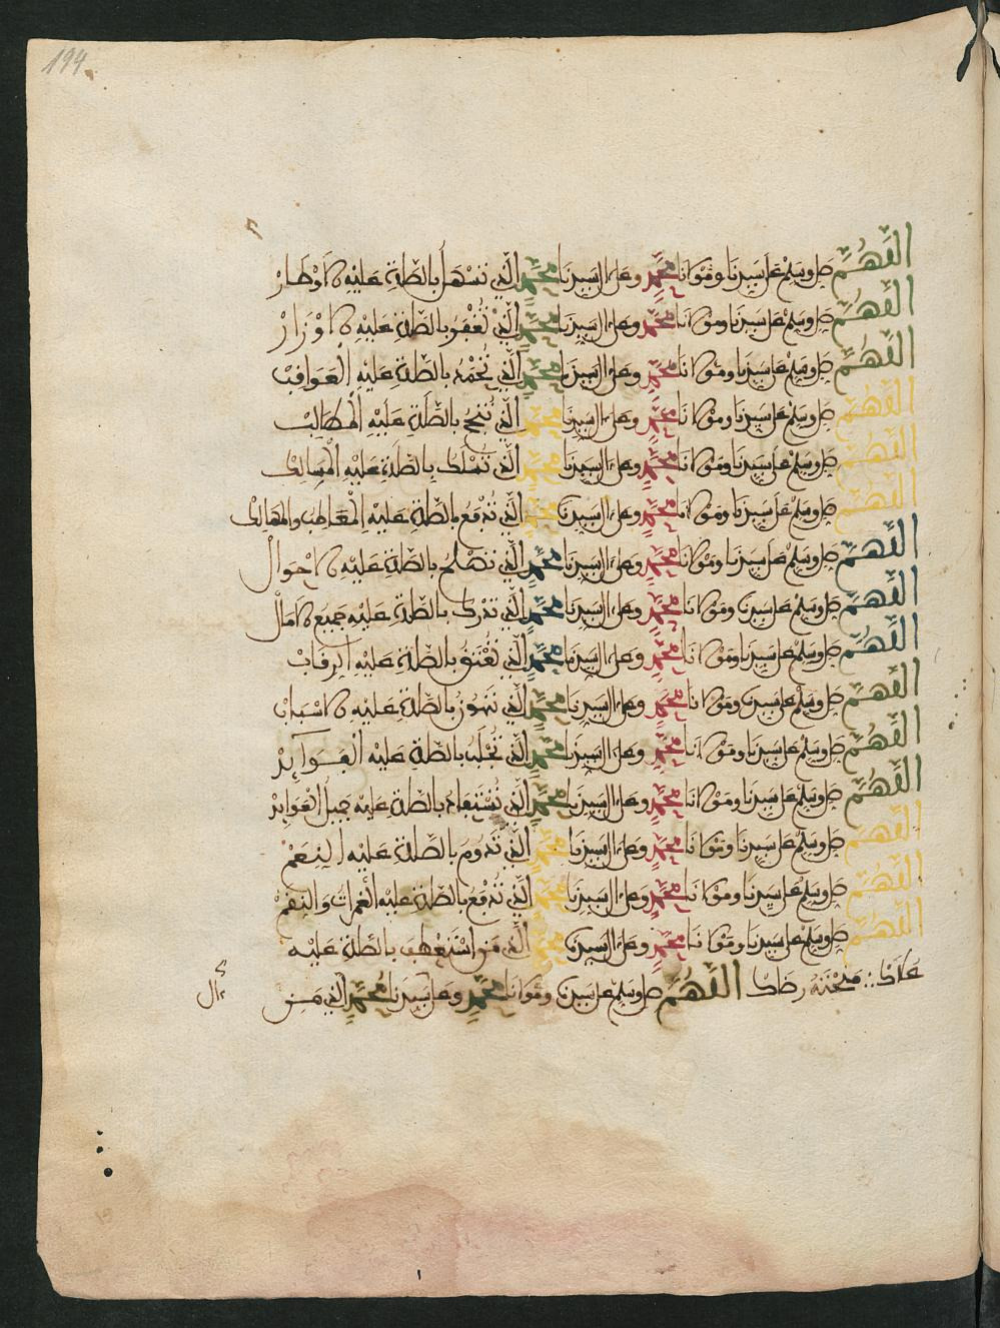 194
اللهم صل وسلم على سيدنا ومولانا محمد وعلى ءال سيدنا محمد الذي تسهل بالصلاة عليه الاوطار
اللهم صل وسلم على سيدنا ومولانا محمد وعلى ءال سيدنا محمد الذي تغفر بالصلاة عليه الاوزار
اللهم صل وسلم على سيدنا ومولانا محمد وعلى ءال سيدنا محمد الذي تحمد بالصلاة عليه العواقب
اللهم صل وسلم على سيدنا ومولانا محمد وعلى ءال سيدنا محمد الذي تنجح بالصلاة عليه المطالب
اللهم صل وسلم على سيدنا ومولانا محمد وعلى ءال سيدنا محمد الذي تسلك بالصلاة عليه المسالك
اللهم صل وسلم على سيدنا ومولانا محمد وعلى ءال سيدنا محمد الذي تدفع بالصلاة عليه المعاطب والمهالك
اللهم صل وسلم على سيدنا ومولانا محمد وعلى ءال سيدنا محمد الذي تصلح بالصلاة عليه الاحوال
اللهم صل وسلم على سيدنا ومولانا محمد وعلى ءال سيدنا محمد الذي تدرك بالصلاة عليه جميع الامال
اللهم صل وسلم على سيدنا ومولانا محمد وعلى ءال سيدنا محمد الذي تعتق بالصلاة عليه الرقاب
اللهم صل وسلم على سيدنا ومولانا محمد وعلى ءال سيدنا محمد الذي بالصلاة عليه الاسباب
اللهم صل وسلم على سيدنا ومولانا محمد وعلى ءال سيدنا محمد الذي تجلب بالصلاة عليه الفوائد
اللهم صل وسلم على سيدنا ومولانا محمد وعلى ءال سيدنا محمد الذي تستعاد بالصلاة عليه جميل العوائد
اللهم صل وسلم على سيدنا ومولانا محمد وعلى ءال سيدنا محمد الذي تدوم بالصلاة عليه النعم
اللهم صل وسلم على سيدنا ومولانا محمد وعلى ءال سيدنا محمد الذي تدفع بالصلاة عليه الغمرات والنقم
اللهم صل وسلم على سيدنا ومولانا محمد وعلى ءال سيدنا محمد الذي من استعطف بالصلاة عليه
علاك منحته رضاك اللهم صل وسلم على سيدنا ومولانا محمد وعلى سيدنا محمد الذي من
ءال